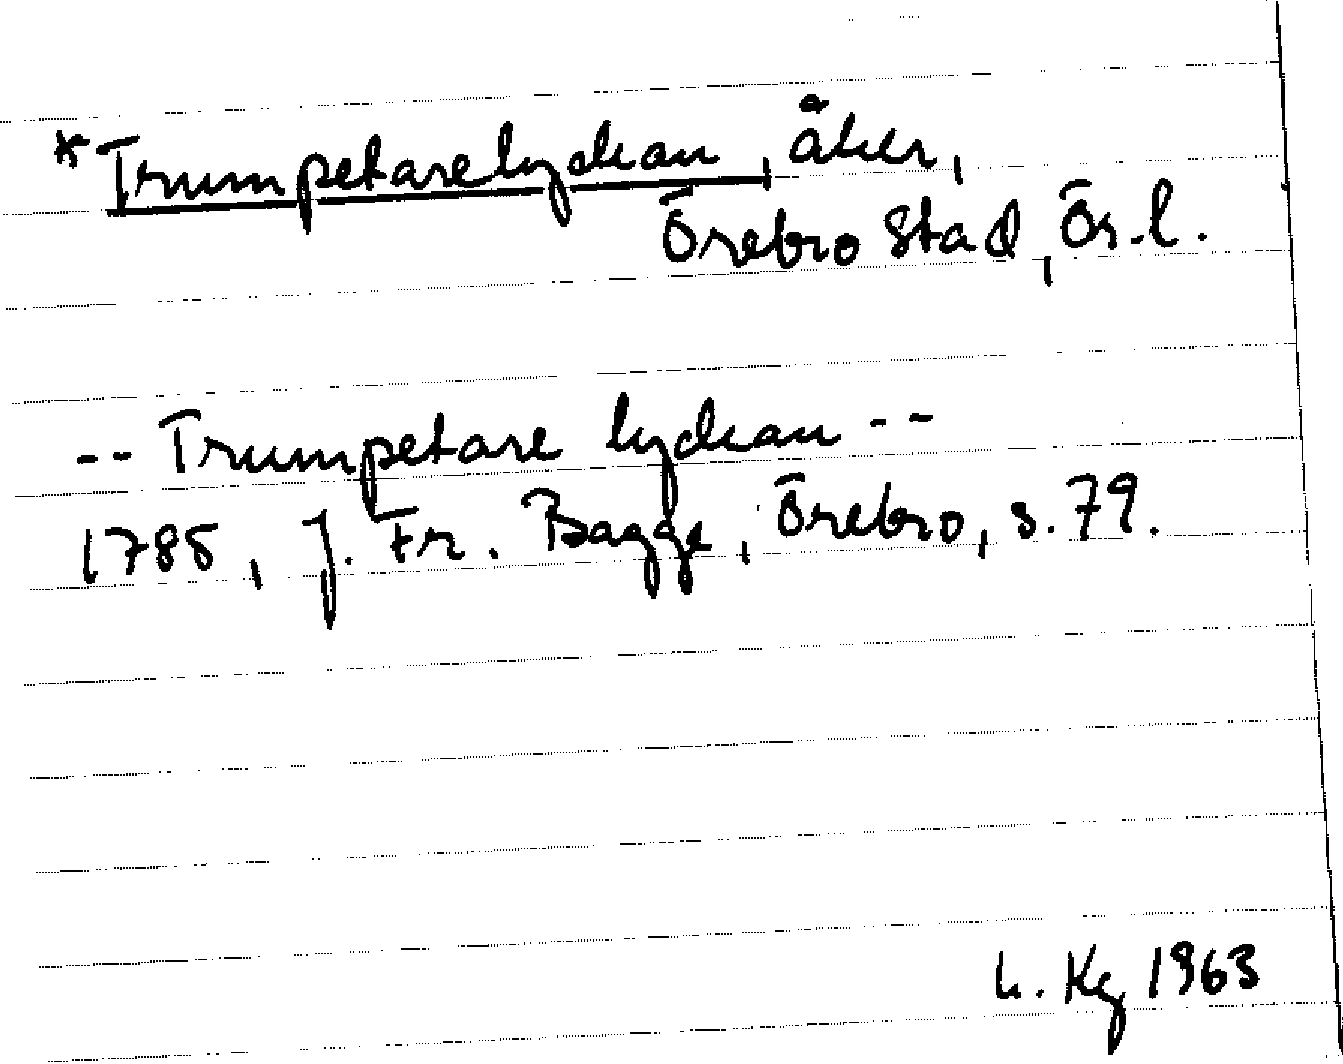 *Trumpetarelyckan, åker,
Örebro stad, Ör.l.
-- Trumpetare lyckan --
1785, J. Fr. Bagge, Örebro, s. 79.
L. Kg 1963